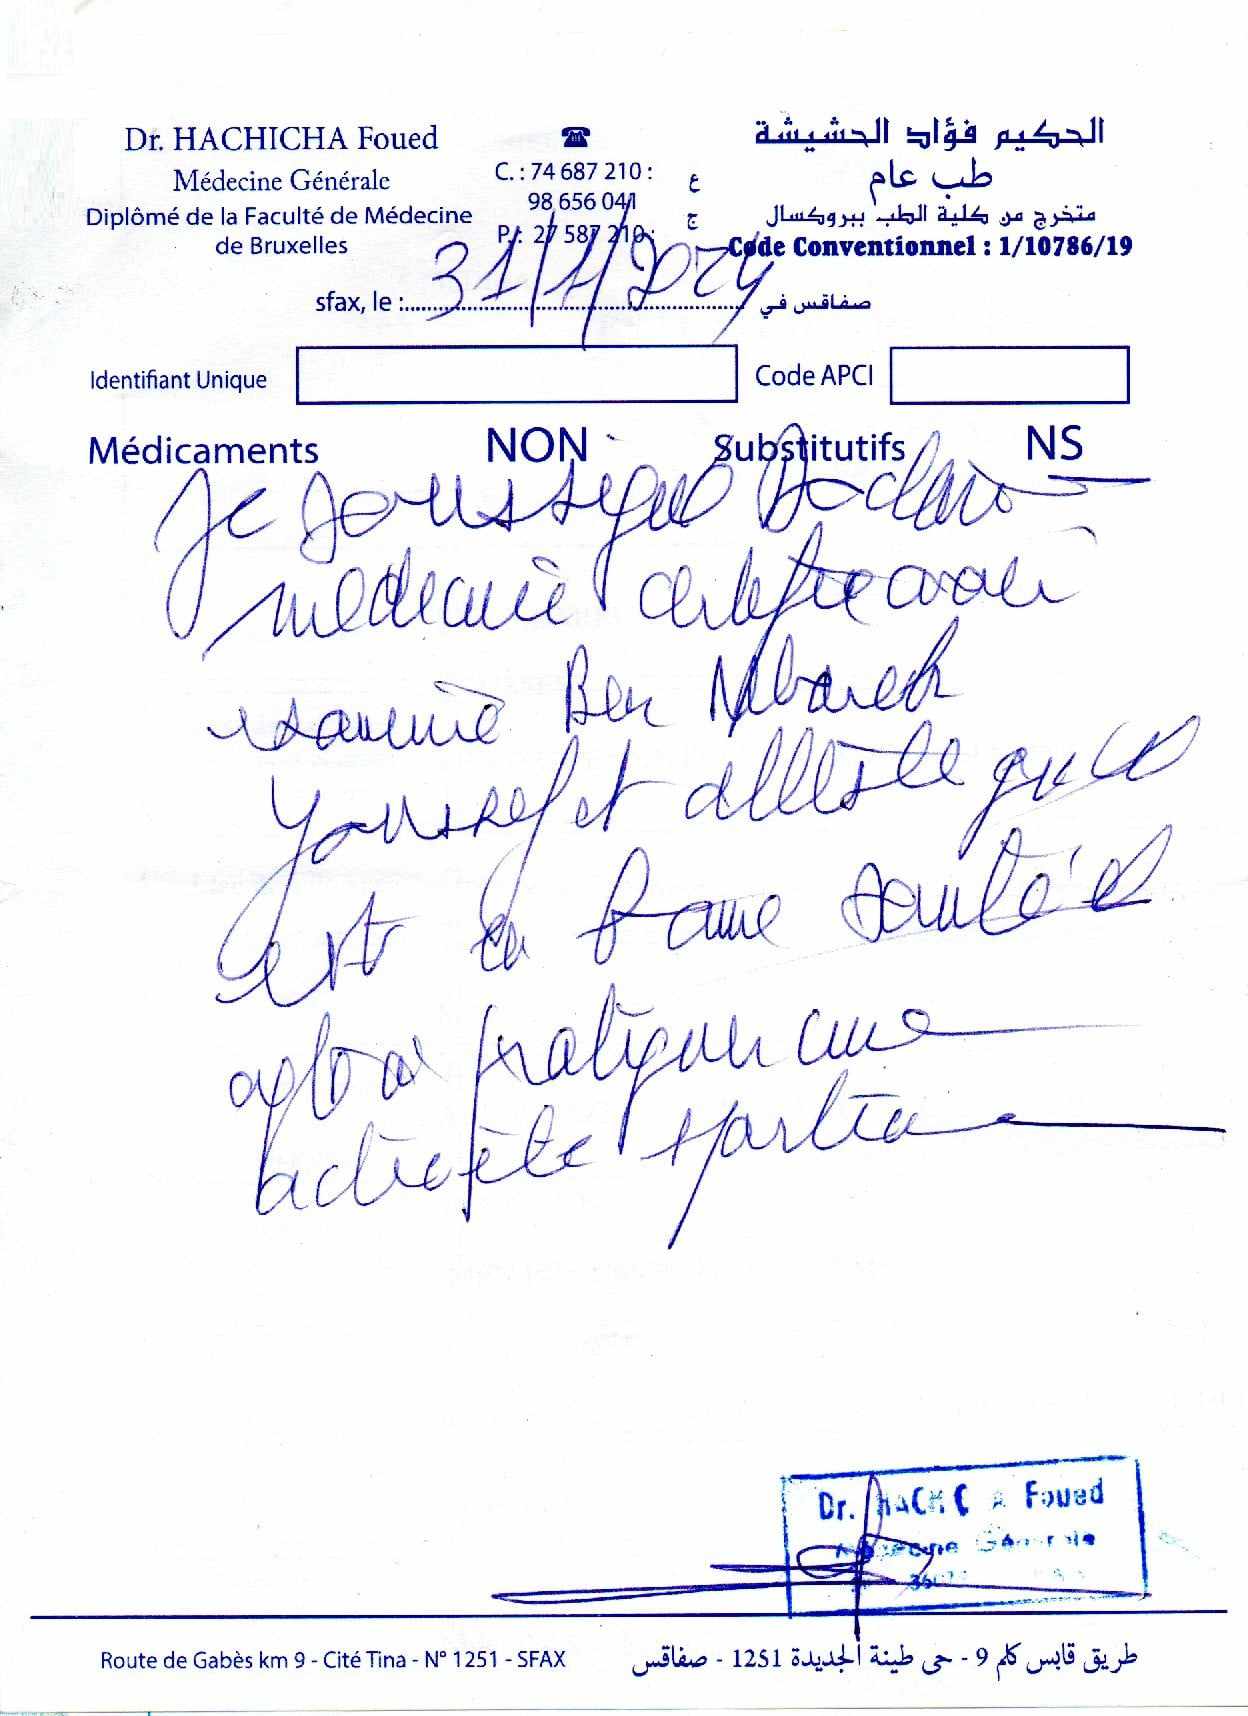 Dr. HACHICHA Foued
Médecine Générale
Diplômé de la Faculté de Médecine
de Bruxelles
☎
C. : 74 687 210 : ع
98 656 041 ج
P. : 27 587 210 :
الحكيم فؤاد الحشيشة
طب عام
متخرج من كلية الطب ببروكسال
Code Conventionnel : 1/10786/19
sfax, le : 31/1/2024 صفاقس في
Identifiant Unique
Code APCI
Médicaments NON Substitutifs NS
Je soussigné Docteur
médecine certifie avoir
examiné Ben Mbarek
Youssef et atteste qu'il
est en bonne santé et
apte à pratiquer une
activité sportive
Dr. HACHICHA Foued
Médecine Générale
Route de Gabès km 9 - Cité Tina - N° 1251 - SFAX
طريق قابس كلم 9 - حي طينة الجديدة 1251 - صفاقس